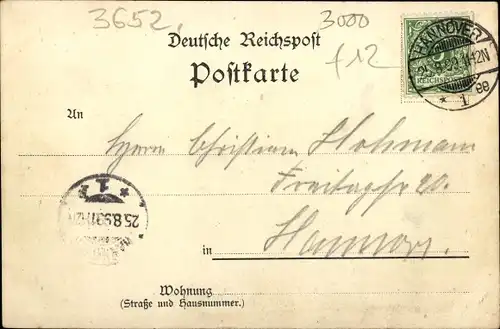 3652.
3000
f12
Deutsche Reichspost
Postkarte
HANNOVER
11-12N
* 1 gg
REICHSPOST
An
Herrn Christian Hohmann
Freitagstr 20.
* 1 *
25.8.99.11-12N
in Hannover.
Wohnung
(Straße und Hausnummer.)